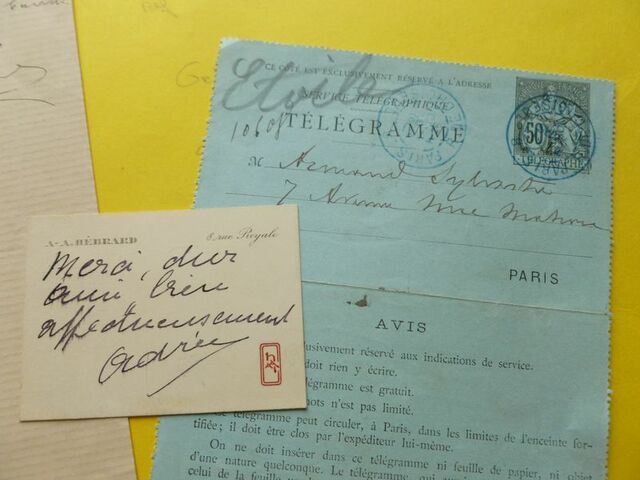 CE CÔTÉ EST EXCLUSIVEMENT RÉSERVÉ A L'ADRESSE
Etoile
SERVICE TÉLÉGRAPHIQUE
10608
TÉLÉGRAMME
50
PARIS
M Armand Sylvestre
7 Avenue Mac Mahon
PARIS
A.-A. HÉBRARD
8, rue Royale
Merci, cher
ami, bien
affectueusement
Adrien
AVIS
clusivement réservé aux indications de service.
doit rien y écrire.
légramme est gratuit.
nots n'est pas limité.
télégramme peut circuler, à Paris, dans les limites de l'enceinte for-
tifiée; il doit être clos par l'expéditeur lui-même.
On ne doit insérer dans ce télégramme ni feuille de papier, ni objet
d'une nature quelconque. Le télégramme, qui
celui de la feuille